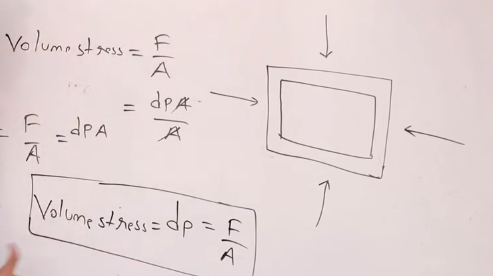 Volume stress = F/A
= dPA/A
= F/A = dPA
Volume stress = dp = F/A